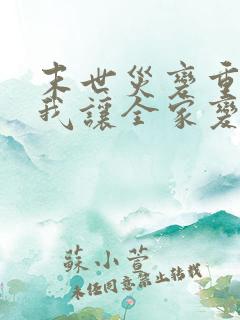 末世災變重
我讓全家變
蘇小萱
未經同意禁止轉載